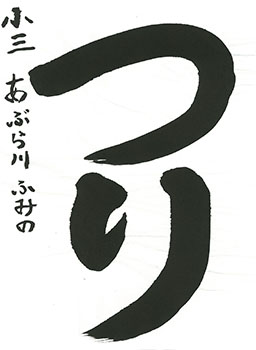 つり
小三 あぶら川 ふみの